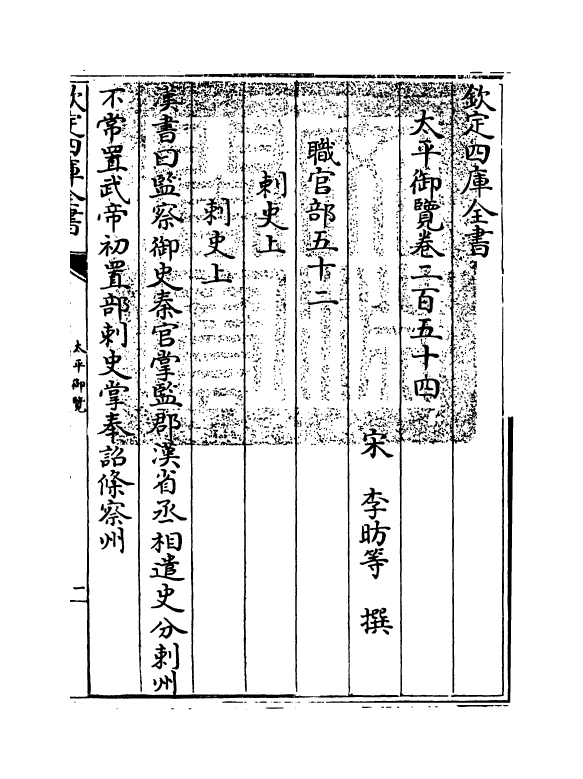 欽定四庫全書
太平御覽卷二百五十四
宋 李昉等 撰
職官部五十二
刺史上
刺史上
漢書曰監察御史秦官掌監郡漢省丞相遣史分刺州
不常置武帝初置部刺史掌奉詔條察州
欽定四庫全書
太平御覽
二